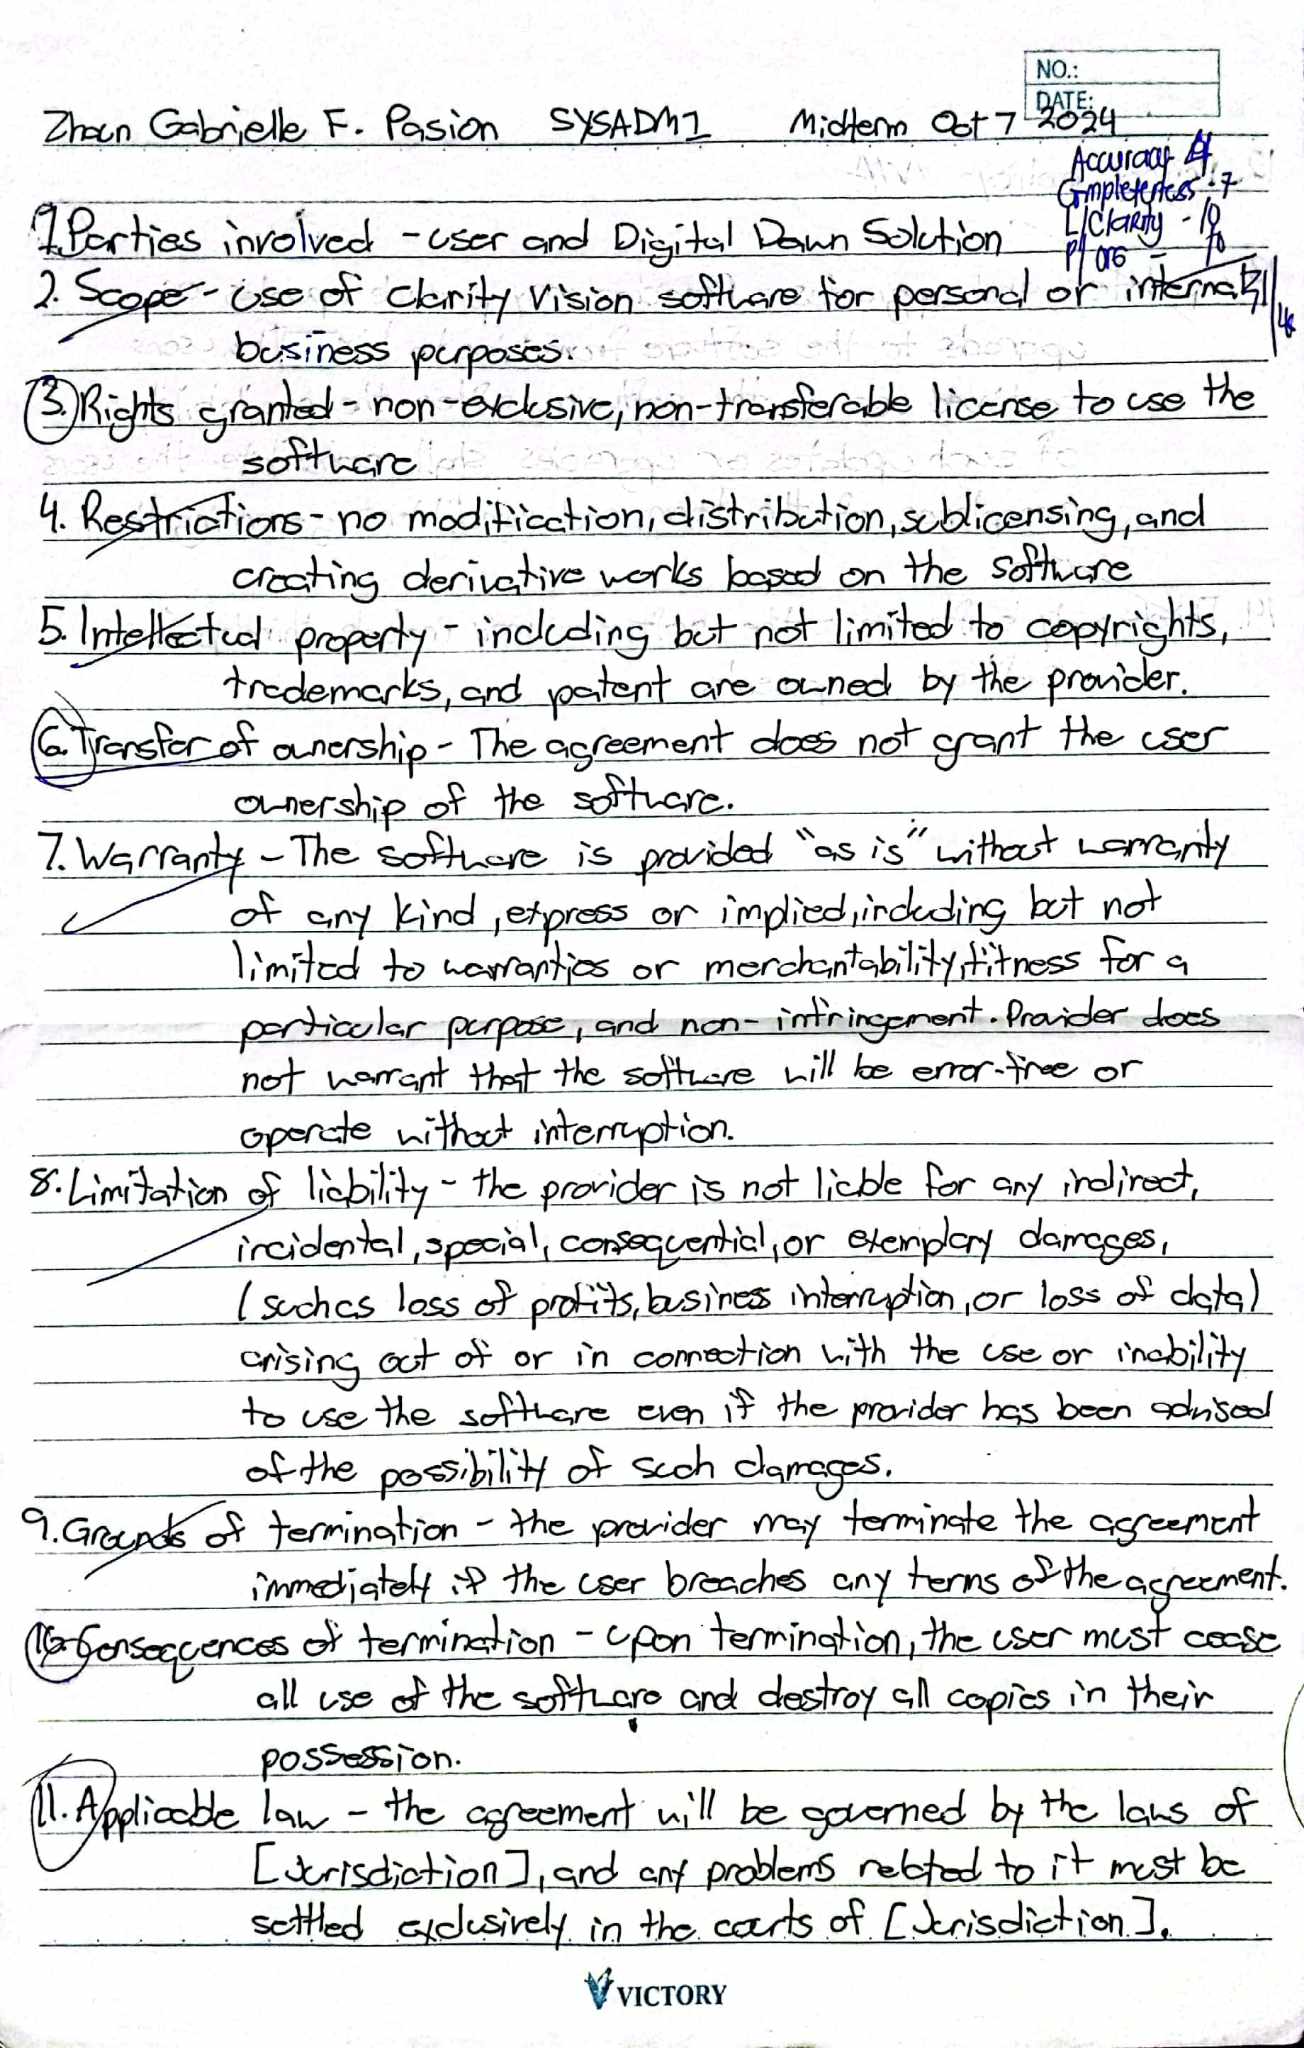 NO.:
DATE:
Zhan Gabrielle F. Pasion SYSADM1 Midterm Oct 7 2024
Accuracy 4
Completeness - 7
L/Clarity - 10
P/org - 10
1. Parties involved - user and Digital Dawn Solution
2. Scope - use of Clarity Vision software for personal or internal
business purposes.
3. Rights granted - non-exclusive, non-transferable license to use the
software
4. Restrictions - no modification, distribution, sublicensing, and
creating derivative works based on the software
5. Intellectual property - including but not limited to copyrights,
trademarks, and patent are owned by the provider.
6. Transfer of ownership - The agreement does not grant the user
ownership of the software.
7. Warranty - The software is provided "as is" without warranty
of any kind, express or implied, including but not
limited to warranties or merchantability, fitness for a
particular purpose, and non-infringement. Provider does
not warrant that the software will be error-free or
operate without interruption.
8. Limitation of liability - the provider is not liable for any indirect,
incidental, special, consequential, or exemplary damages,
(such as loss of profits, business interruption, or loss of data)
arising out of or in connection with the use or inability
to use the software even if the provider has been advised
of the possibility of such damages.
9. Grounds of termination - the provider may terminate the agreement
immediately if the user breaches any terms of the agreement.
10. Consequences of termination - upon termination, the user must cease
all use of the software and destroy all copies in their
possession.
11. Applicable law - the agreement will be governed by the laws of
[Jurisdiction], and any problems related to it must be
settled exclusively in the courts of [Jurisdiction].
VICTORY